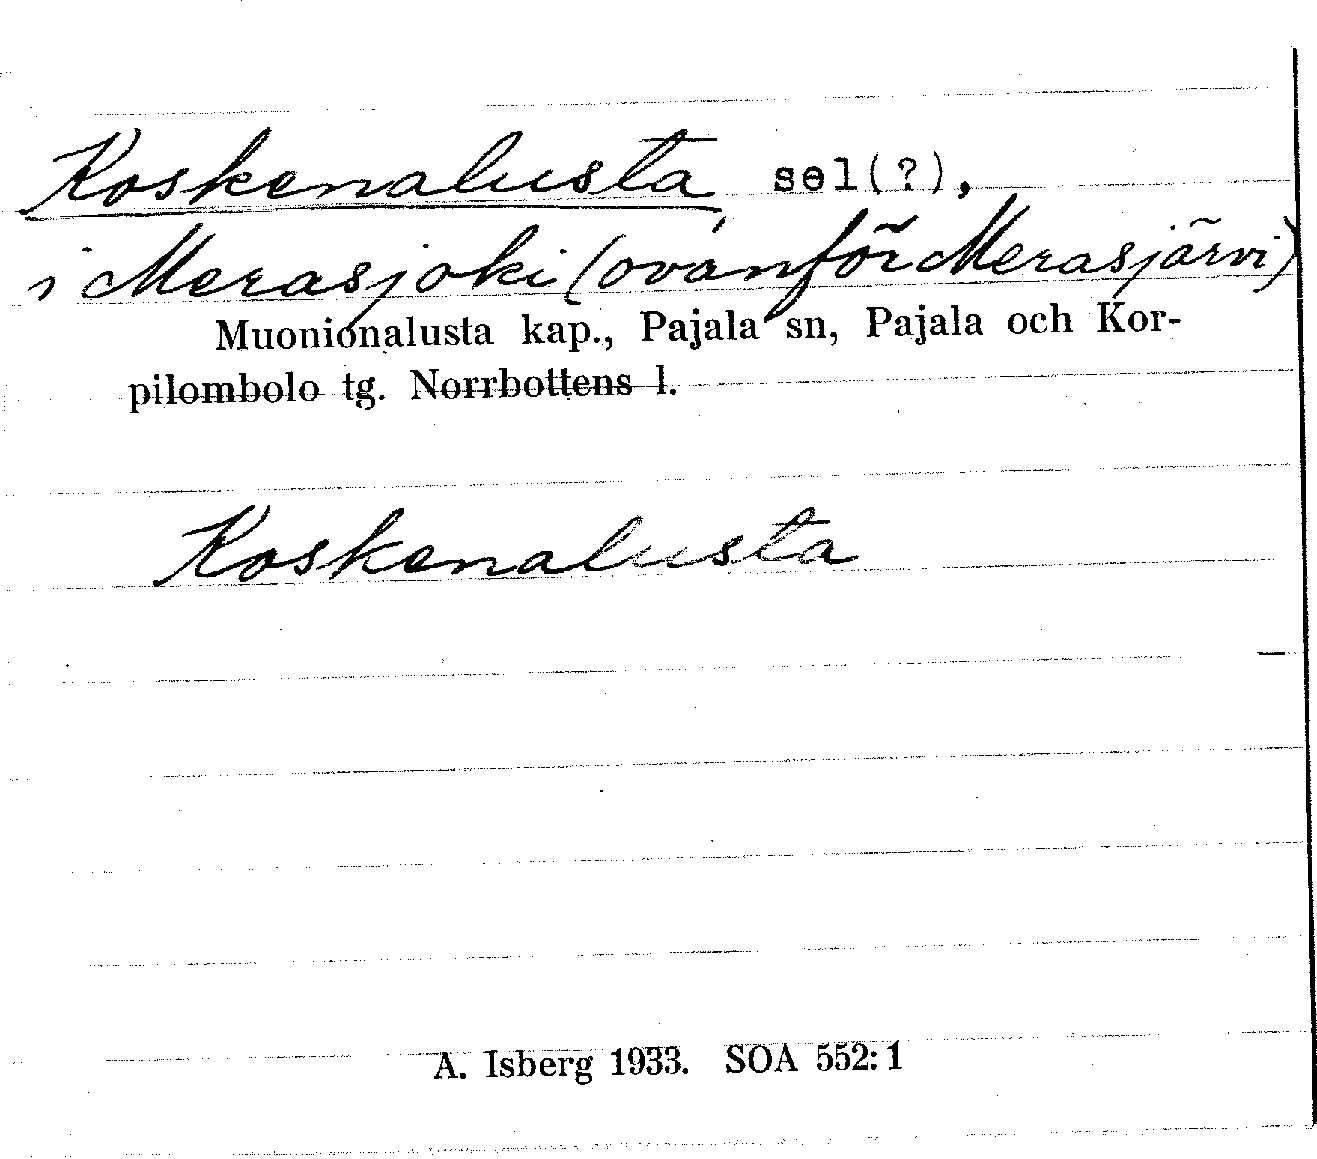 Koskenalusta, sel(?),
i Merasjoki (ovanför Merasjärvi)
Muonionalusta kap., Pajala sn, Pajala och Kor-
pilombolo tg. Norrbottens l.
Koskenalusta
A. Isberg 1933. SOA 552: 1